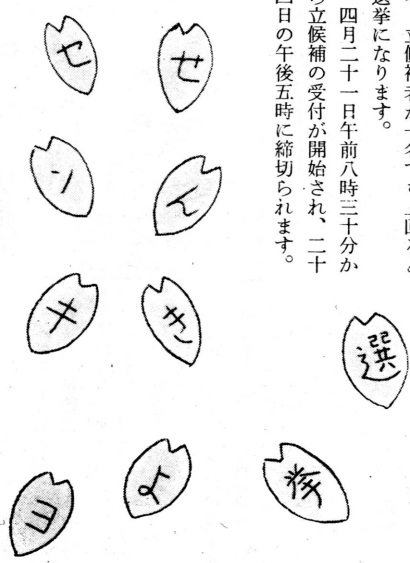 立候補者が一名でも上回る
選挙になります。
四月二十一日午前八時三十分か
ら立候補の受付が開始され、二十
四日の午後五時に締切られます。
選
挙
せ
ん
き
よ
セ
ン
キ
ヨ